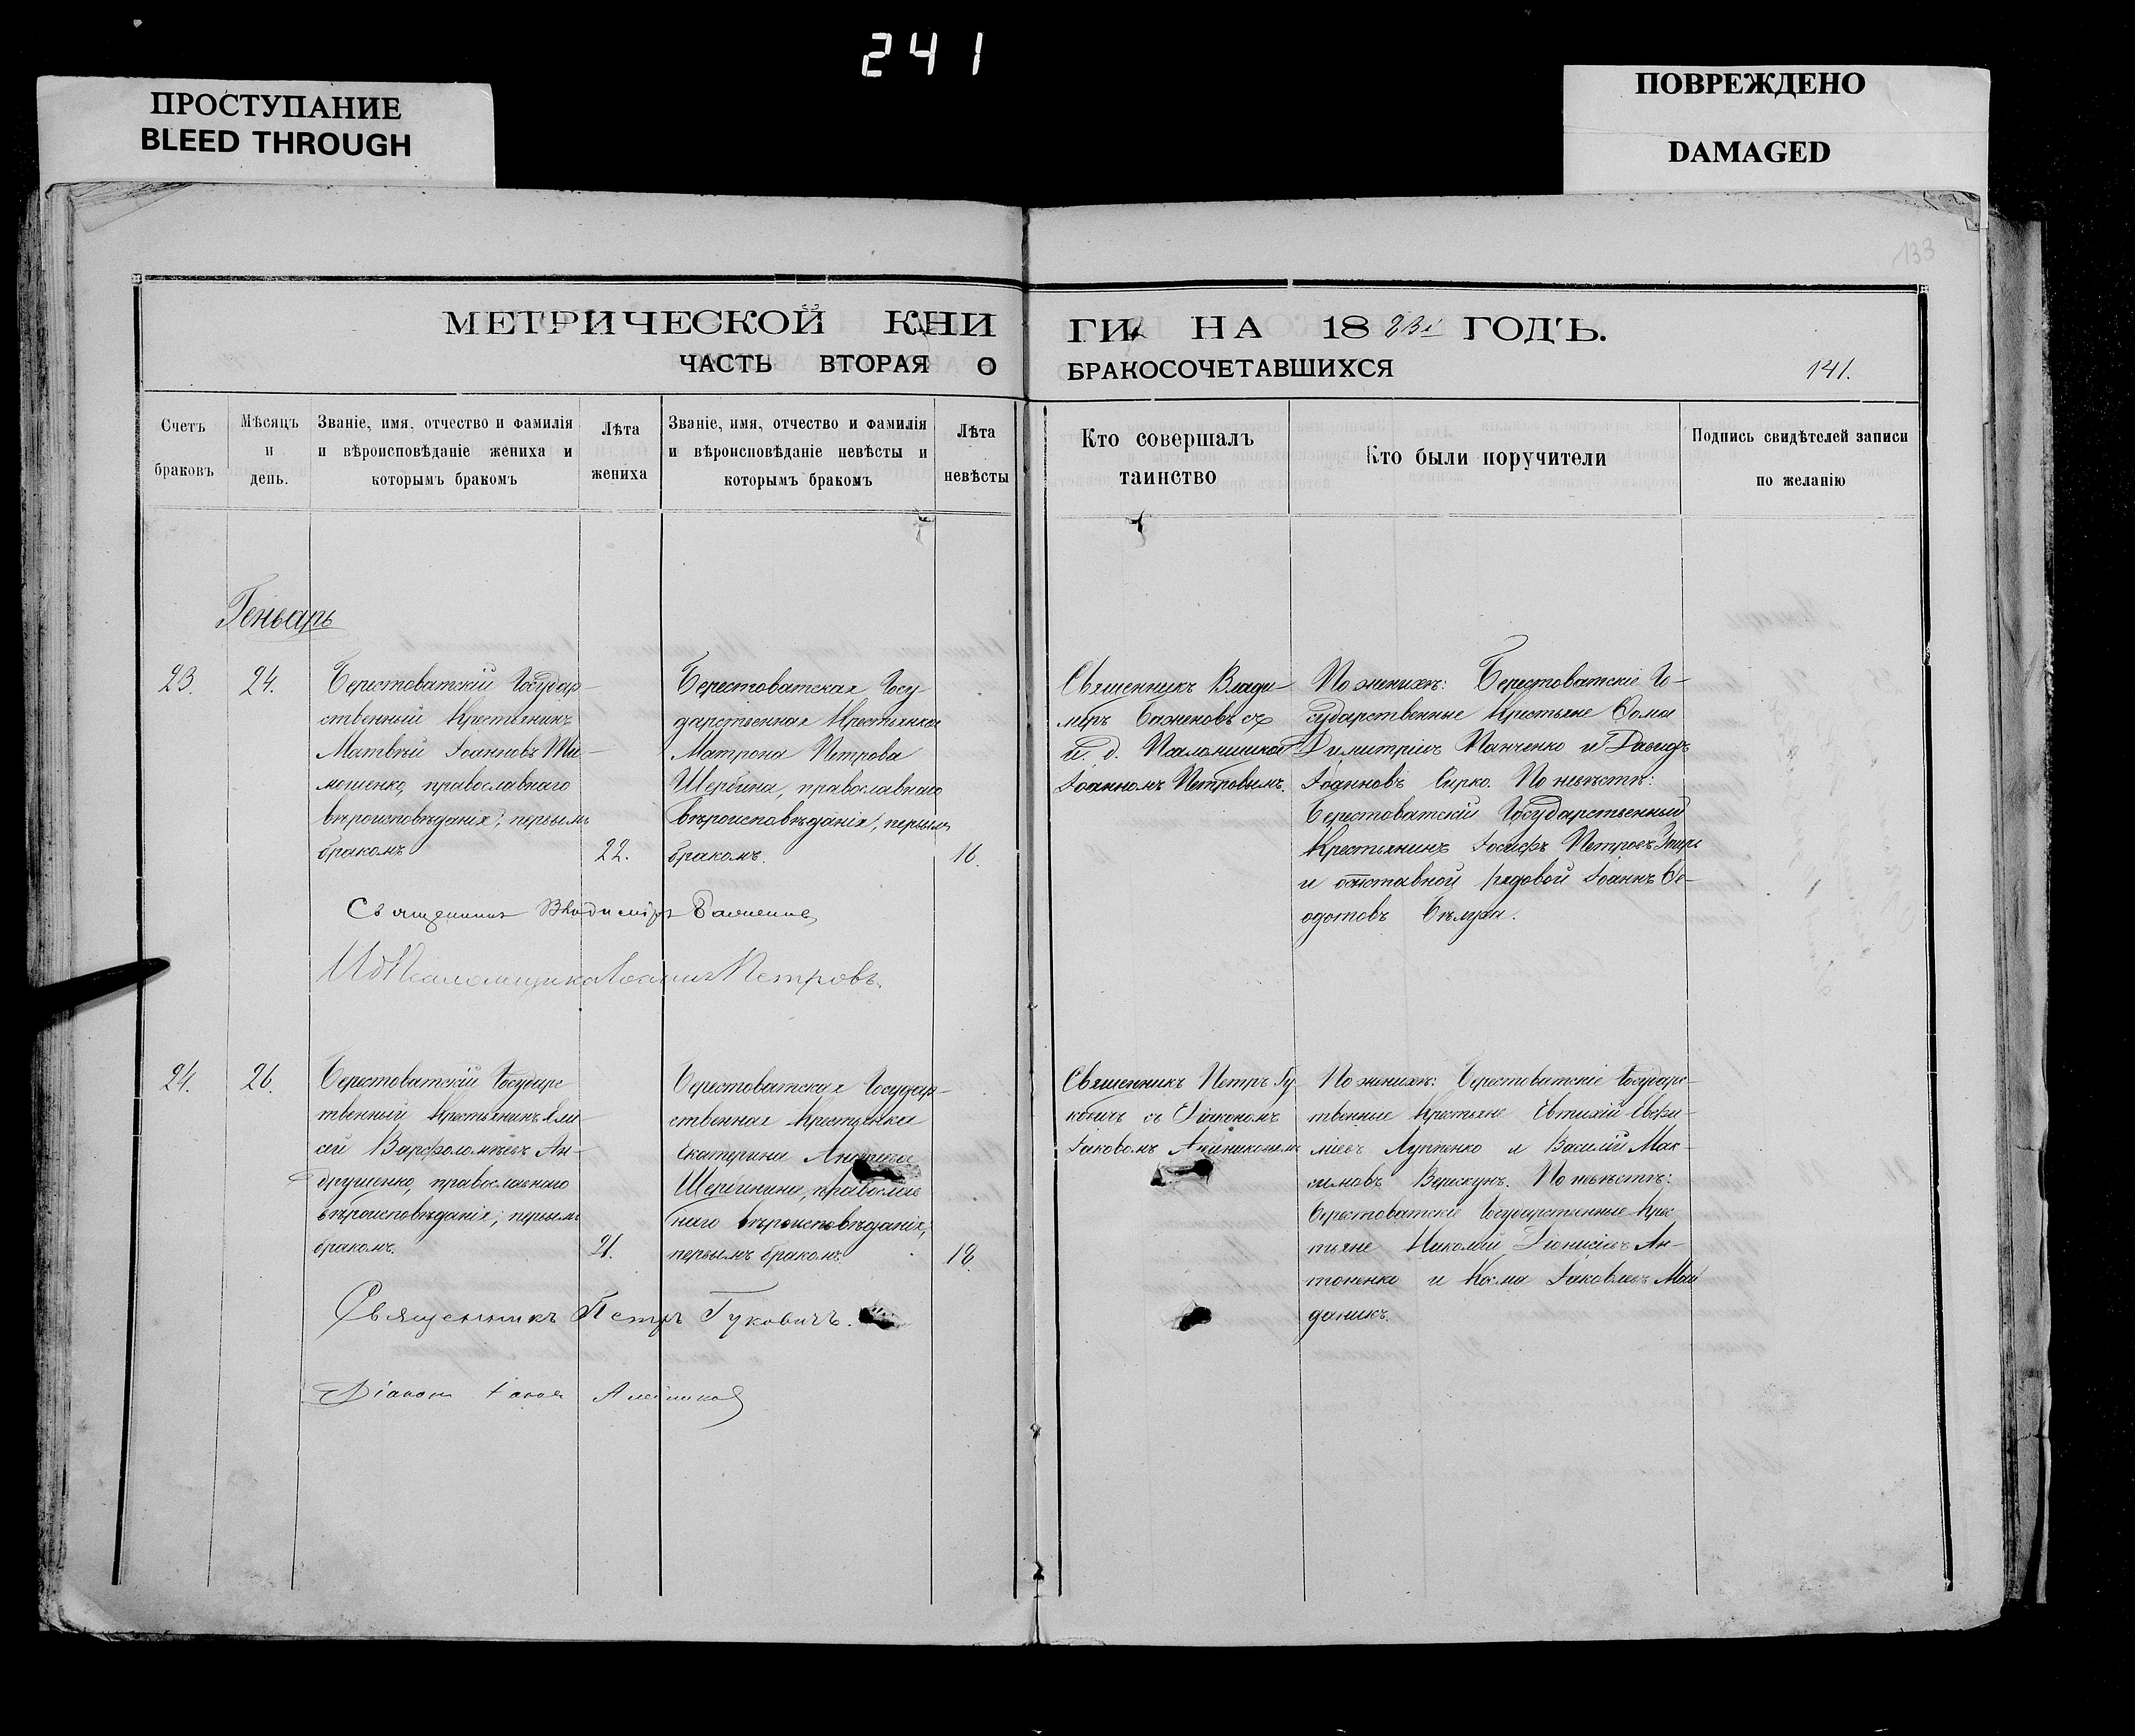 241
ПРОСТУПАНИЕ
BLEED THROUGH
ПОВРЕЖДЕНО
DAMAGED
133
МЕТРИЧЕСКОЙ КНИ
ГИ НА 18 83й ГОДЪ.
ЧАСТЬ ВТОРАЯ О
БРАКОСОЧЕТАВШИХСЯ
141.
Счетъ
браковъ
Мѣсяцъ
и
день.
Званіе, имя, отчество и фамилія
и вѣроисповѣданіе жениха и
которымъ бракомъ
Лѣта
жениха
Званіе, имя, отчество и фамилія
и вѣроисповѣданіе невѣсты и
которымъ бракомъ
Лѣта
невѣсты
Кто совершалъ
таинство
Кто были поручители
Подпись свидѣтелей записи
по желанію
Генварь
23.
24.
Берестоватскій Государ-
ственный Крестьянинъ
Матвѣй Іоанновъ Ти-
мошенко, православнаго
вѣроисповѣданія, первымъ
бракомъ
22.
Берестоватская Госу
дарственная Крестьянка
Матрона Петрова
Щербина, православнаго
вѣроисповѣданія, первымъ
бракомъ.
16.
Священникъ Влади-
міръ Баженовъ съ
и. д. Псаломщика
Іоанномъ Петровымъ.
По женихѣ: Берестоватскіе Го-
сударственные Крестьяне Ѳома
Димитріевъ Панченко и Давидъ
Іоанновъ Сирко. По невѣстѣ:
Берестоватскій Государственный
Крестьянинъ Іосифъ Петровъ
и отставной рядовой Іоаннъ Ѳе-
одотовъ
Священникъ Владиміръ Баженовъ
ИдПсаломщика Іоаннъ Петровъ.
24.
26.
Берестоватскій Государс
твенный Крестьянинъ Ели-
сей Варфоломѣевъ Ан-
друшенко, православнаго
вѣроисповѣданія, первымъ
бракомъ.
21.
Берестоватская Государ-
ственная Крестьянка
Екатерина
православ
наго вѣроисповѣданія,
первымъ бракомъ.
18.
Священникъ Петръ Гу
ковичъ съ Діакономъ
Іаковомъ Алейниковымъ
По женихѣ: Берестоватскіе Государс-
твенные Крестьяне Евтихій Евфи-
міевъ и Василій Мак-
симовъ Верескунъ. По невѣстѣ:
Берестоватскіе Государственные Крес
тьяне Николай Діонисіевъ Ан-
тоненко и Косма Іаковлевъ Май
даникъ.
Священникъ Петръ Гуковичъ.
Діаконъ Іаковъ Алейниковъ